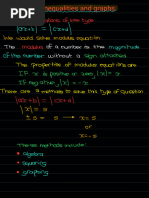 Inequalities and graphs
equations of the type
|ax+b| = |cx+d|
We would solve modulus equation
The modulus of a number is the magnitude
of the number without a sign attached
The properties of modulus equations are
If x is positive or zero, |x| = x
If negative, |x| = -x
There are 3 methods to solve this type of question
|ax+b| = |cx+d|
|x| = 5
± 5 = 5 → x = 5
or
x = -5
These methods include:
• algebra
• squaring
• graphing